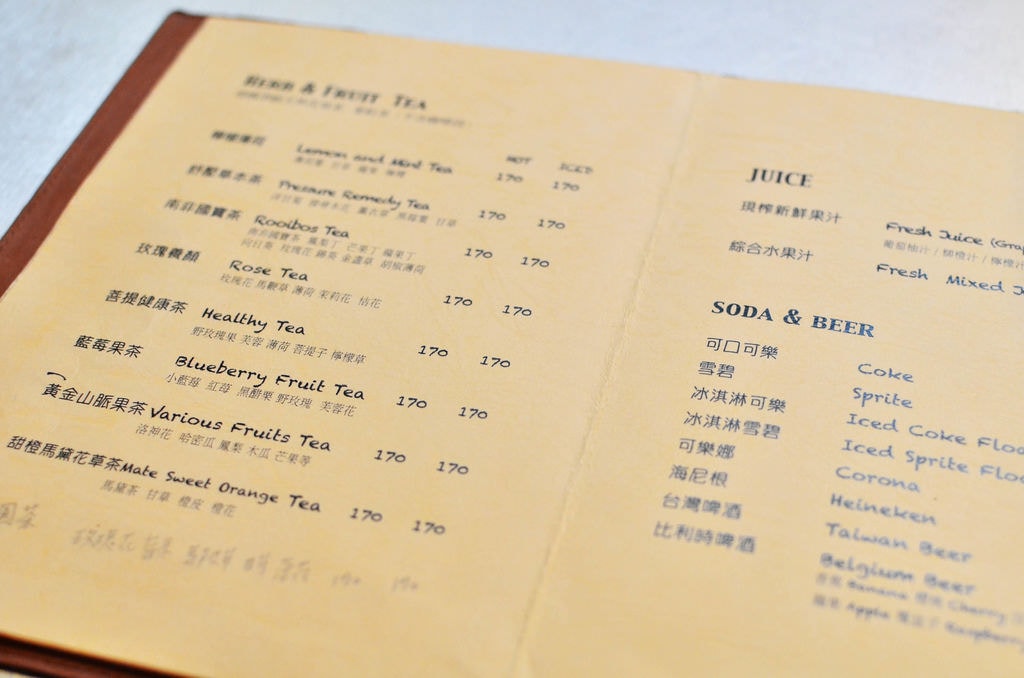 HERB & FRUIT TEA
HOT ICED
檸檬薄荷 Lemon and Mint Tea 170 170
舒壓草本茶 Pressure Remedy Tea 170 170
南非國寶茶 Rooibos Tea 170 170
南非國寶茶 鳳梨丁 芒果丁 蘋果丁
向日葵 玫瑰花 錦葵 金盞草 胡椒薄荷
玫瑰養顏 Rose Tea 170 170
玫瑰花 馬鞭草 薄荷 茉莉花 桔花
菩提健康茶 Healthy Tea 170 170
野玫瑰果 芙蓉 薄荷 菩提子 檸檬草
藍莓果茶 Blueberry Fruit Tea 170 170
小藍莓 紅莓 黑醋栗 野玫瑰 芙蓉花
黃金山脈果茶 Various Fruits Tea 170 170
洛神花 哈密瓜 鳳梨 木瓜 芒果等
甜橙馬黛花草茶 Mate Sweet Orange Tea 170 170
馬黛茶 甘草 橙皮 橙花
玫瑰花
JUICE
現榨新鮮果汁 Fresh Juice (Grap
葡萄柚汁 / 柳橙汁 / 檸檬汁
綜合水果汁 Fresh Mixed J
SODA & BEER
可口可樂 Coke
雪碧 Sprite
冰淇淋可樂 Iced Coke Floa
冰淇淋雪碧 Iced Sprite Floa
可樂娜 Corona
海尼根 Heineken
台灣啤酒 Taiwan Beer
比利時啤酒 Belgium Beer
香蕉 Banana 櫻桃 Cherry
蘋果 Apple 覆盆子 Raspberry